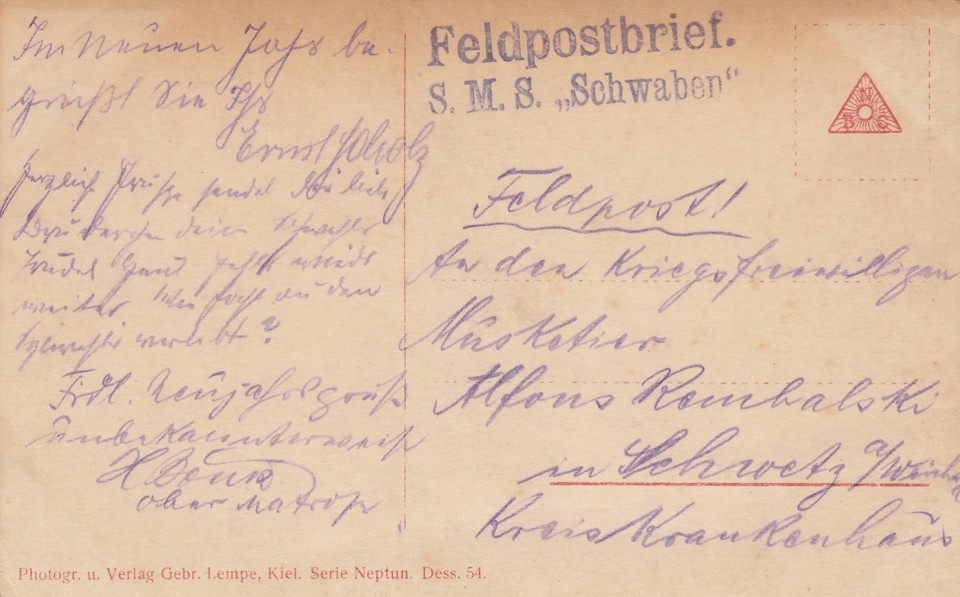 Im Neuen Jahr be-
grüßt Sie Ihr
Ernst Scholz
Herzlich Grüße sendet dir liebe
Brüderchen deine Schwester
Trudel
weiter Wie hast du den
Sylvester verlebt?
Frdl. Neujahrsgrüße
unbekannterweise
H
Obermatrose
Feldpostbrief.
S. M. S. „Schwaben“
Feldpost!
An den Kriegsfreiwilligen
Musketier
Alfons Rembalski
in Schwetz a/Weichsel
Kreiskrankenhaus
Photogr. u. Verlag Gebr. Lempe, Kiel. Serie Neptun. Dess. 54.